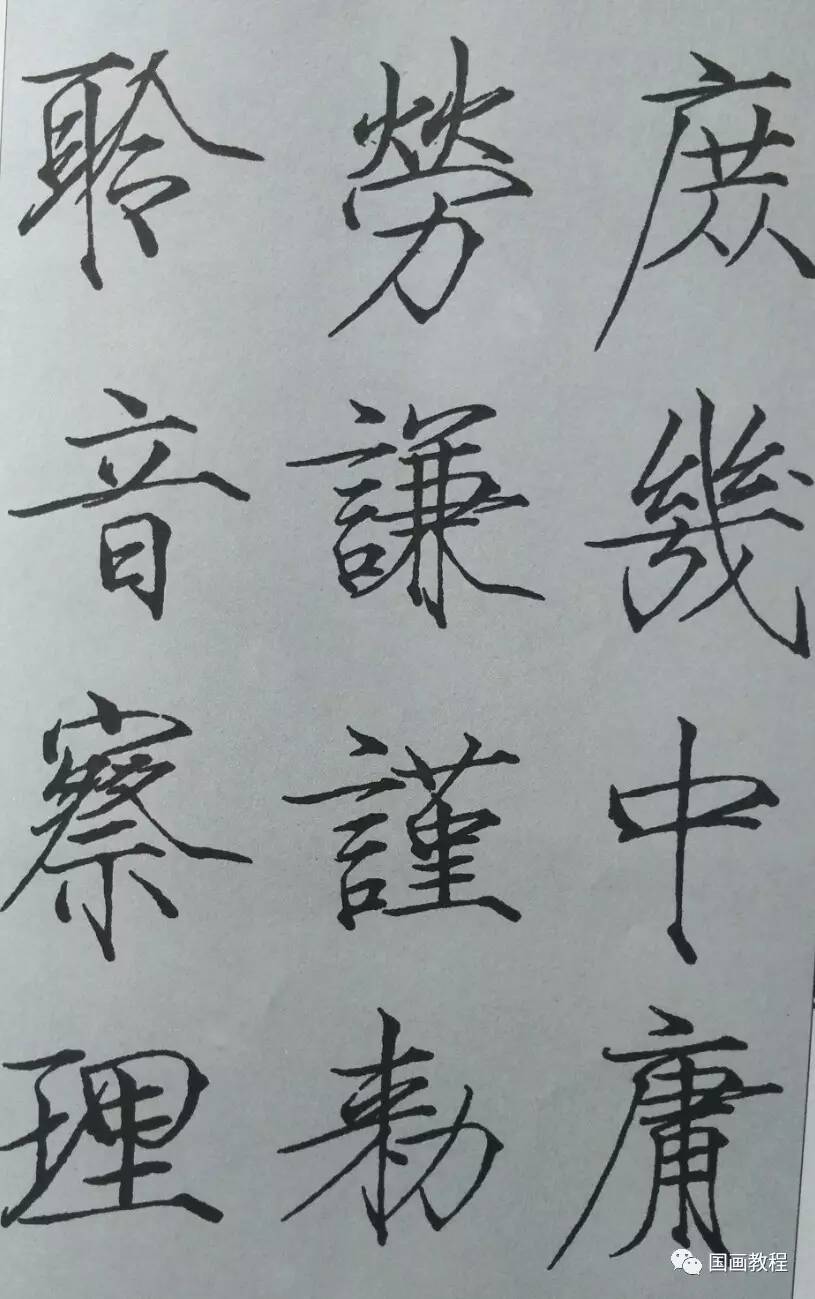 庶幾中庸
勞謙謹勑
聆音察理
国画教程